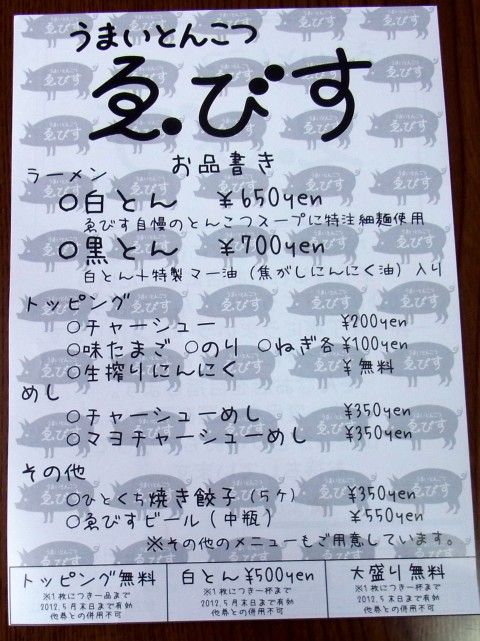 うまいとんこつ
ゑびす
お品書き
ラーメン
○白とん ¥650yen
ゑびす自慢のとんこつスープに特注細麺使用
○黒とん ¥700yen
白とん+特製マー油(焦がしにんにく油)入り
トッピング
○チャーシュー ¥200yen
○味たまご ○のり ○ねぎ各¥100yen
○生搾りにんにく ¥無料
めし
○チャーシューめし ¥350yen
○マヨチャーシューめし ¥350yen
その他
○ひとくち焼き餃子(5ケ) ¥350yen
○ゑびすビール(中瓶) ¥550yen
※その他のメニューもご用意しています。
トッピング無料
※1枚につき一品まで
2012.5月末日まで有効
他券との併用不可
白とん¥500yen
※1枚につき一杯まで
2012.5月末日まで有効
他券との併用不可
大盛り無料
※1枚につき一杯まで
2012.5月末日まで有効
他券との併用不可